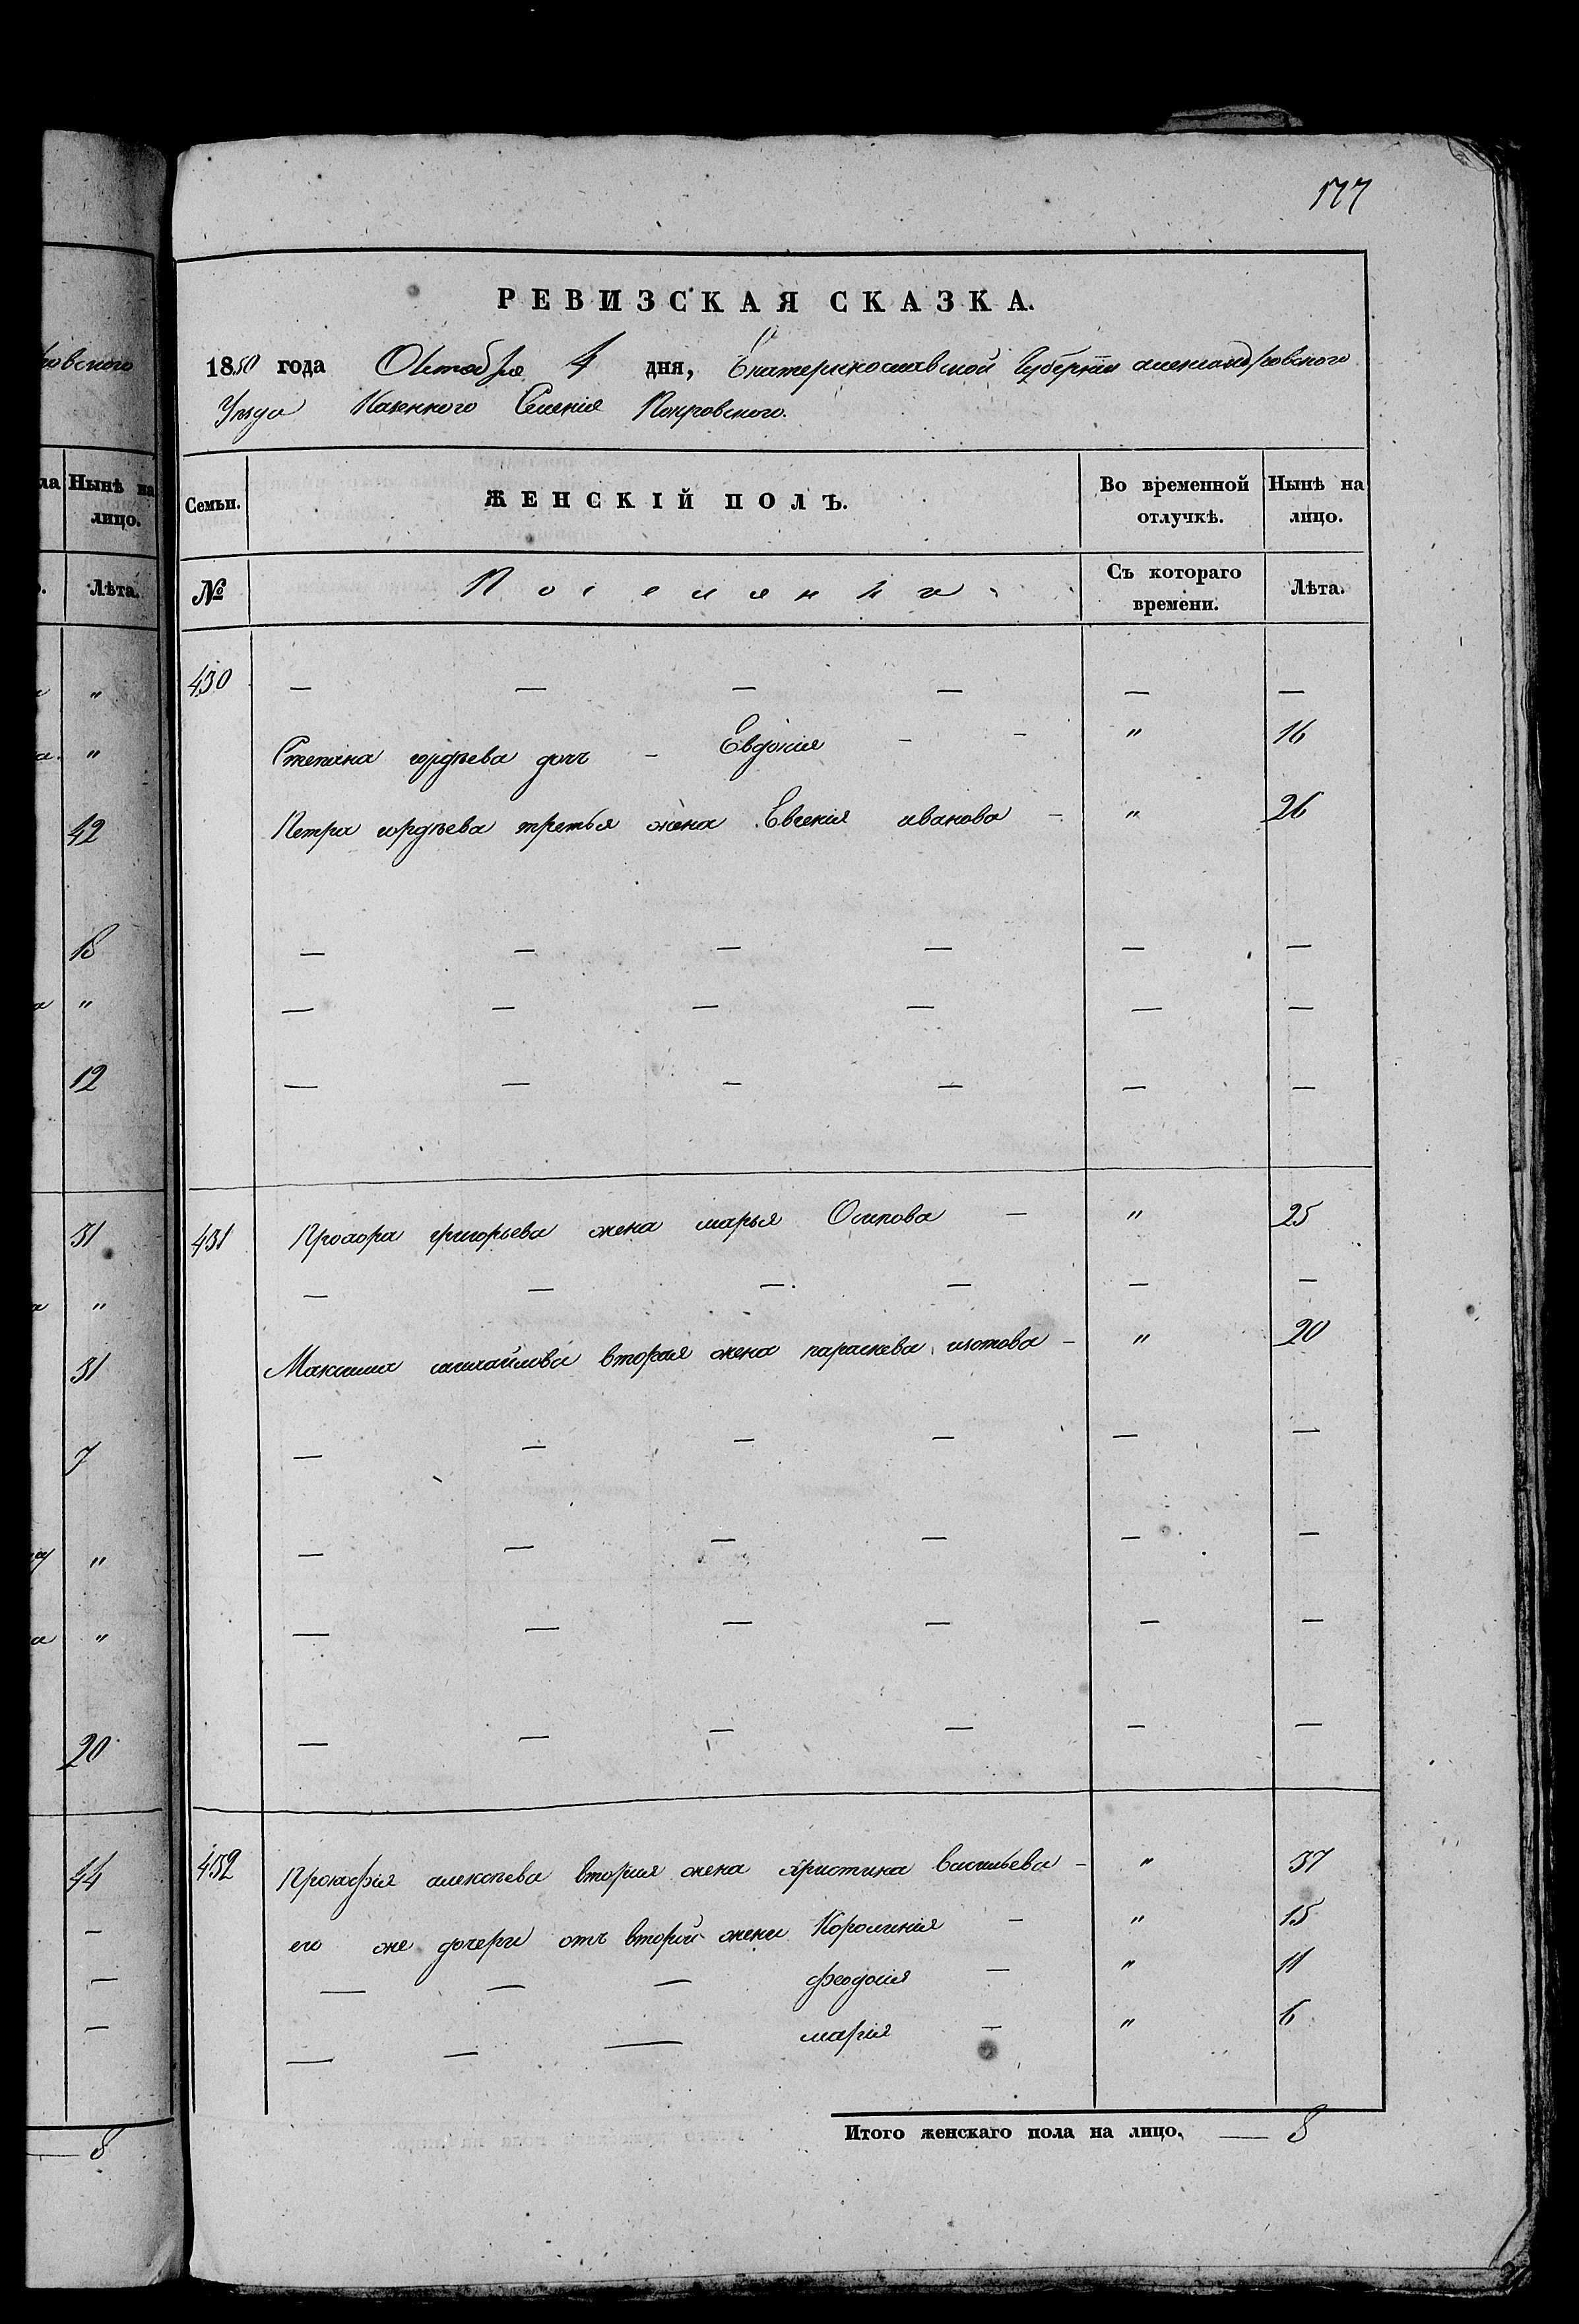 177
ровского
РЕВИЗСКАЯ СКАЗКА.
1850 года Октября 4 дня, Екатеринославской Губернии александровского
Уезда Казенного Селения Покровского.
ла Нынѣ на лицо.
Лѣта.
Семьи. ЖЕНСКІЙ ПОЛЪ. Во временной отлучкѣ. Нынѣ на лицо.
№ Поселянка Съ котораго времени. Лѣта.
430 — — — — — —
Степана гордѣева дочь — Евдокия — — " 16
Петра гордѣева третья жена Евгенія иванова — " 26
— — — — — —
— — — — — —
— — — — — —
431 Прохора григорьева жена марья Осипова — " 25
— — — — — —
Максима михайлова вторая жена параскева изотова — " 20
— — — — — —
— — — — — —
— — — — — —
— — — — — —
432 Прокофія алексѣева вторая жена христина васильева — " 37
его же дочери отъ второй жены — " 15
— — — феодосия — " 11
— — — мария — " 6
Итого женскаго пола на лицо. — 8
"
"
42
18
"
12
31
"
31
7
"
"
20
44
—
—
—
— 8